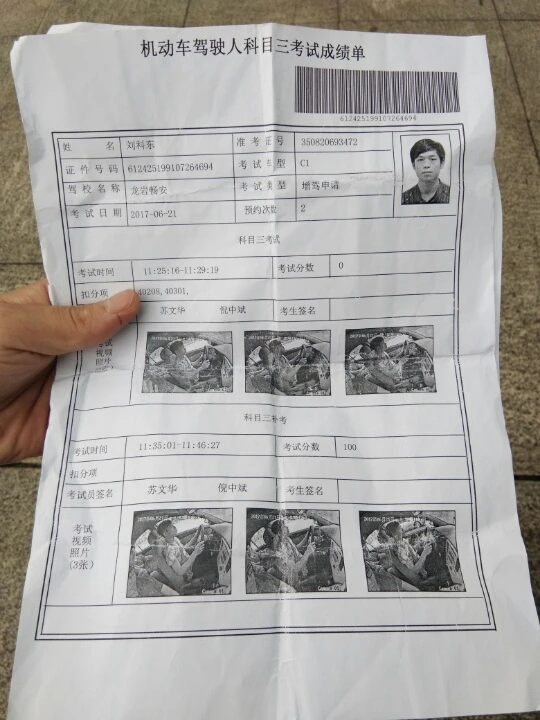 机动车驾驶人科目三考试成绩单
612425199107264694
姓名 刘科东 准考证号 350820693472
证件号码 612425199107264694 考试车型 C1
驾校名称 龙岩畅安 考试类型 增驾申请
考试日期 2017-06-21 预约次数 2
科目三考试
考试时间 11:25:16-11:29:19 考试分数 0
扣分项 40208,40301,
苏文华 倪中斌 考生签名
考试
视频
照片
科目三补考
考试时间 11:35:01-11:46:27 考试分数 100
扣分项
考试员签名 苏文华 倪中斌 考生签名
考试
视频
照片
(3张)